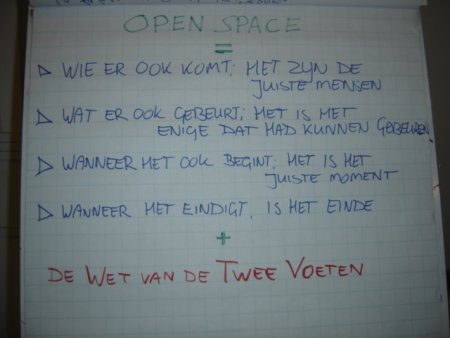 OPEN SPACE
=
▷ WIE ER OOK KOMT; HET ZIJN DE
JUISTE MENSEN
▷ WAT ER OOK GEBEURT; HET IS HET
ENIGE DAT HAD KUNNEN GEBEUREN
▷ WANNEER HET OOK BEGINT; HET IS HET
JUISTE MOMENT
▷ WANNEER HET EINDIGT, IS HET EINDE
+
DE WET VAN DE TWEE VOETEN